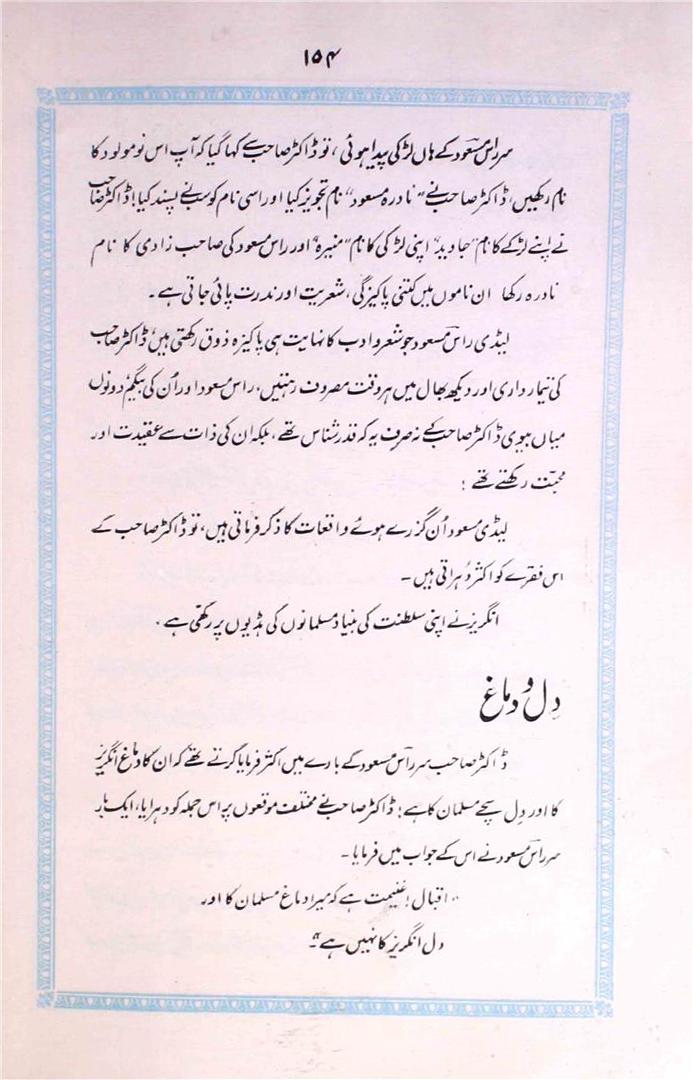 ۱۵۴
سر راس مسعود کے ہاں لڑکی پیدا ہوئی، تو ڈاکٹر صاحب سے کہا گیا کہ آپ اس نومولود کا
نام رکھیں، ڈاکٹر صاحب نے "نادرہ مسعود" نام تجویز کیا اور اسی نام کو سب نے پسند کیا! ڈاکٹر صاحب
نے اپنے لڑکے کا نام "جاوید" اپنی لڑکی کا نام "منیرہ" اور راس مسعود کی صاحب زادی کا نام
نادرہ رکھا ان ناموں میں کتنی پاکیزگی، شعریت اور ندرت پائی جاتی ہے۔
لیڈی راس مسعود جو شعر و ادب کا نہایت ہی پاکیزہ ذوق رکھتی ہیں، ڈاکٹر صاحب
کی تیمار داری اور دیکھ بھال میں ہر وقت مصروف رہتیں، راس مسعود اور اُن کی بیگم دونوں
میاں بیوی ڈاکٹر صاحب کے نہ صرف یہ کہ قدر شناس تھے، بلکہ ان کی ذات سے عقیدت اور
محبت رکھتے تھے!
لیڈی مسعود اُن گزرے ہوئے واقعات کا ذکر فرماتی ہیں، تو ڈاکٹر صاحب کے
اس فقرے کو اکثر دُہراتی ہیں۔
انگریز نے اپنی سلطنت کی بنیاد مسلمانوں کی ہڈیوں پر رکھی ہے۔
دِل و دماغ
ڈاکٹر صاحب سر راس مسعود کے بارے میں اکثر فرمایا کرتے تھے کہ ان کا دماغ انگریز
کا اور دِل سچے مسلمان کا ہے! ڈاکٹر صاحب نے مختلف موقعوں پر اس جملہ کو دہرایا، ایک بار
سر راس مسعود نے اس کے جواب میں فرمایا۔
"اقبال! غنیمت ہے کہ میرا دماغ مسلمان کا اور
دل انگریز کا نہیں ہے"۔